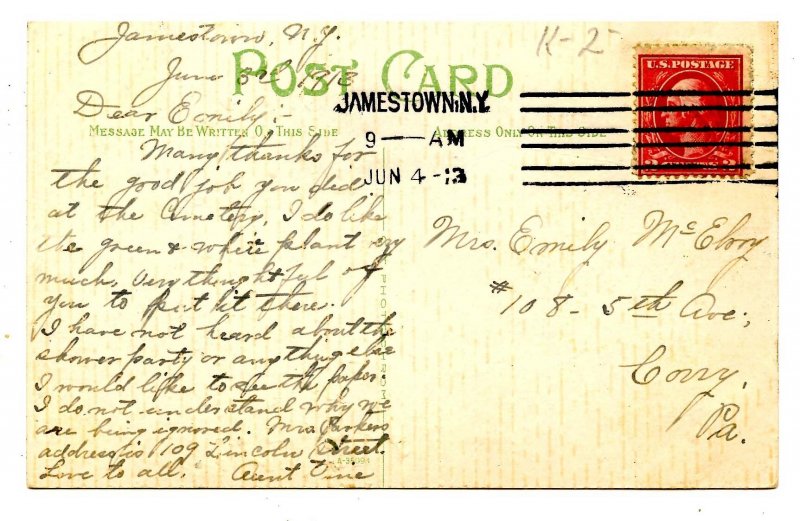 Jamestown, N.Y.
June 3rd 1913
POST CARD
K-2
U.S. POSTAGE
JAMESTOWN, N.Y.
9 — AM
JUN 4 - 13
Dear Emily:-
MESSAGE MAY BE WRITTEN ON THIS SIDE
ADDRESS ONLY ON THIS SIDE
Many thanks for
the good job you did
at the Cemetery, I do like
the green & white plant very
much, very thoughtful of
you to put it there.
I have not heard about the
shower party or anything else
I would like to see the
I do not understand why we
are being ignored. Mrs. Parkers
address is 109 Lincoln Street.
Love to all. Aunt Vine
Mrs. Emily McElroy
#108 - 5th Ave;
Corry,
Pa.